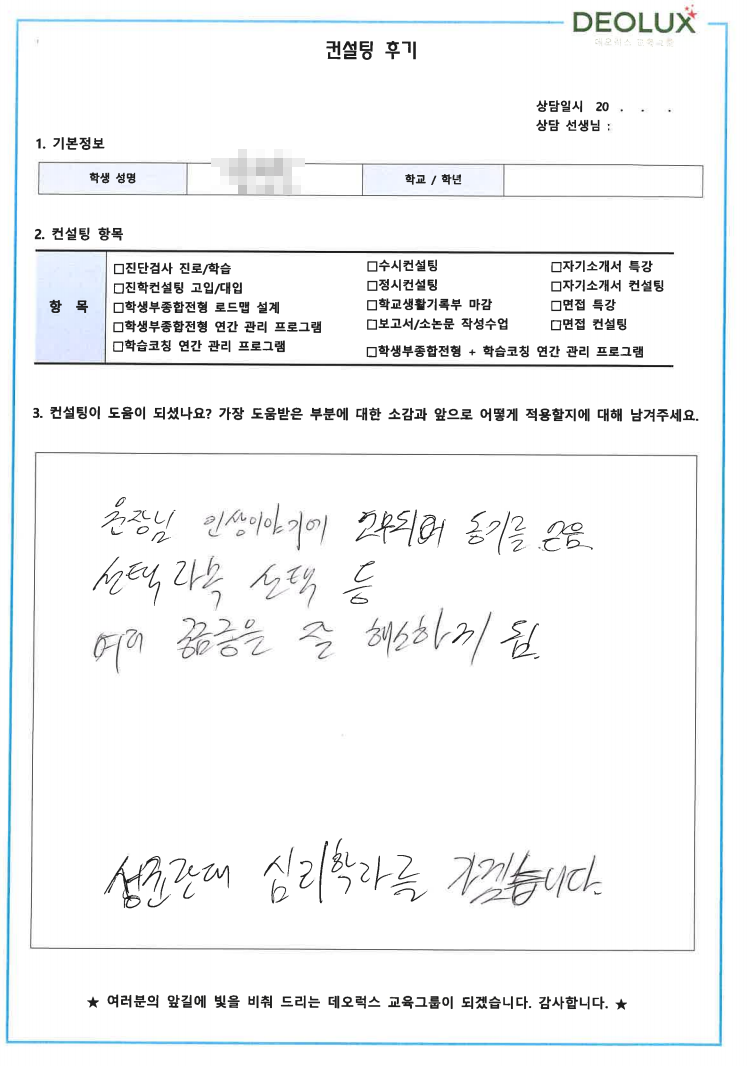 DEOLUX
데오럭스 교육그룹
컨설팅 후기
상담일시 20 . . .
상담 선생님 :
1. 기본정보
학생 성명
학교 / 학년
2. 컨설팅 항목
항 목
□진단검사 진로/학습 □수시컨설팅 □자기소개서 특강
□진학컨설팅 고입/대입 □정시컨설팅 □자기소개서 컨설팅
□학생부종합전형 로드맵 설계 □학교생활기록부 마감 □면접 특강
□학생부종합전형 연간 관리 프로그램 □보고서/소논문 작성수업 □면접 컨설팅
□학습코칭 연간 관리 프로그램 □학생부종합전형 + 학습코칭 연간 관리 프로그램
3. 컨설팅이 도움이 되셨나요? 가장 도움받은 부분에 대한 소감과 앞으로 어떻게 적용할지에 대해 남겨주세요.
원장님 인상이야기에 고무되어 동기를 얻음
선택과목 선택 등
여러 궁금증을 잘 해소하게 됨.
성균관대 심리학과를 가겠습니다.
★ 여러분의 앞길에 빛을 비춰 드리는 데오럭스 교육그룹이 되겠습니다. 감사합니다. ★